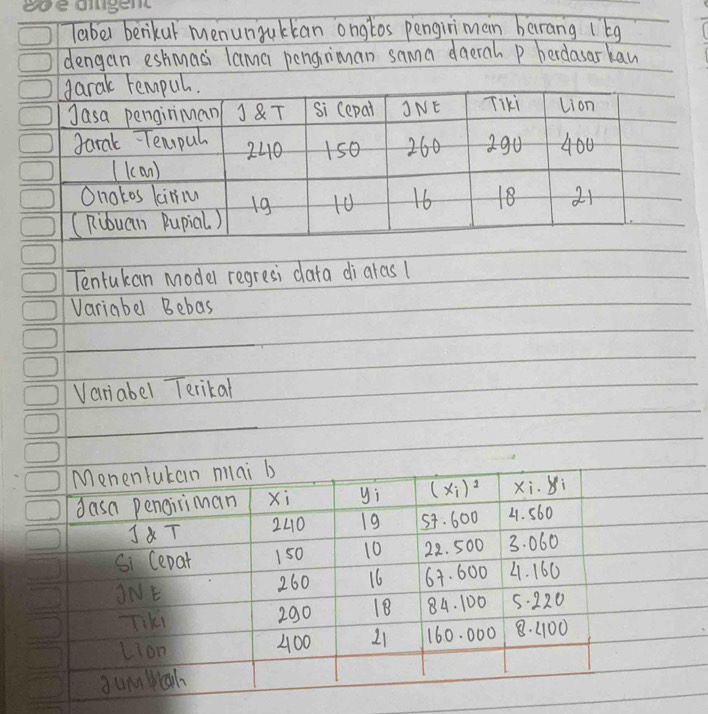 Tabel berikut menunjukkan ongkos pengiriman barang 1 kg
dengan estimasi lama pengiriman sama daerah P berdasarkan
jarak tempuh.
Jasa pengiriman J & T Si Cepat JNE Tiki Lion
Jarak Tempuh (km) 240 150 260 290 400
Ongkos kirim (Ribuan Rupiah) 19 10 16 18 21
Tentukan model regresi data di atas!
Variabel Bebas
Variabel Terikat
Menentukan nilai b
Jasa pengiriman xi yi (xi)² xi.yi
J & T 240 19 57.600 4.560
Si Cepat 150 10 22.500 3.060
JNE 260 16 67.600 4.160
Tiki 290 18 84.100 5.220
Lion 400 21 160.000 8.400
Jumlah